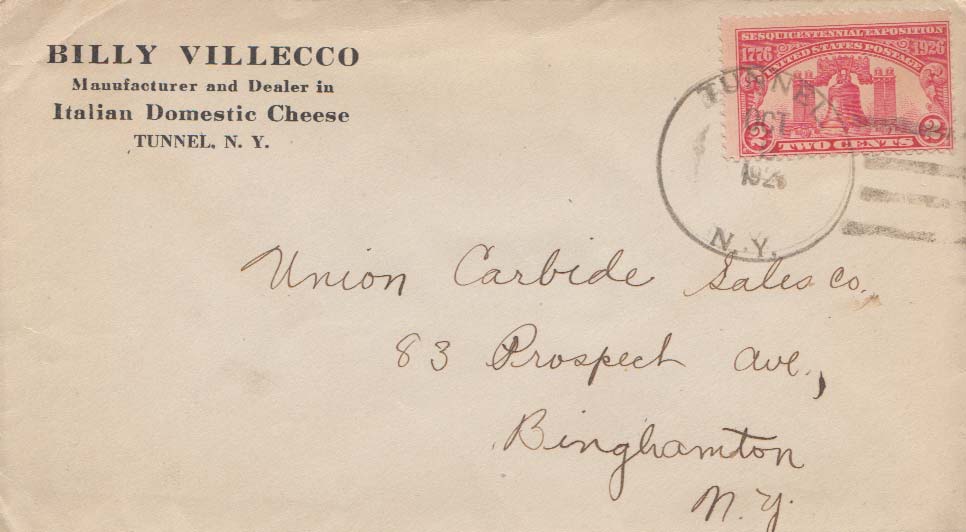 BILLY VILLECCO
Manufacturer and Dealer in
Italian Domestic Cheese
TUNNEL, N. Y.
SESQUICENTENNIAL EXPOSITION
1776 UNITED STATES POSTAGE 1926
2 TWO CENTS 2
TUNNEL
OCT
N. Y.
Union Carbide Sales Co.
83 Prospect Ave.,
Binghamton
N.Y.